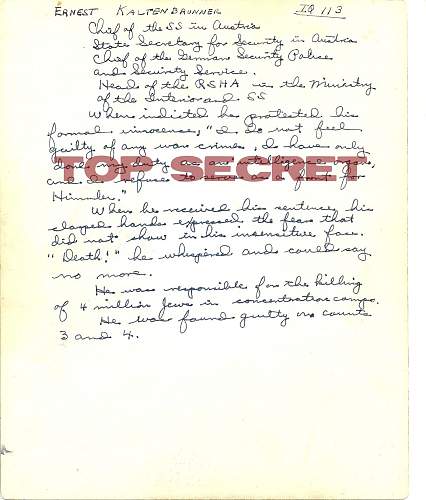 ERNEST KALTENBRUNNER IQ 113
Chief of the SS in Austria
State Secretary for Security in Austria
Chief of the German Security Police
and Security Service.
Head of the RSHA in the Ministry
of the Interior and SS
When indicted he protested his
formal innocence, "I do not feel
guilty of any war crimes, I have only
done my duty as an intelligence organ,
and I refuse to serve as a front for
TOP SECRET
Himmler."
When he received his sentence, his
clasped hands expressed the fear that
did not show in his insensitive face.
"Death!" he whispered and could say
no more.
He was responsible for the killing
of 4 million Jews in concentration camps.
He was found guilty on counts
3 and 4.